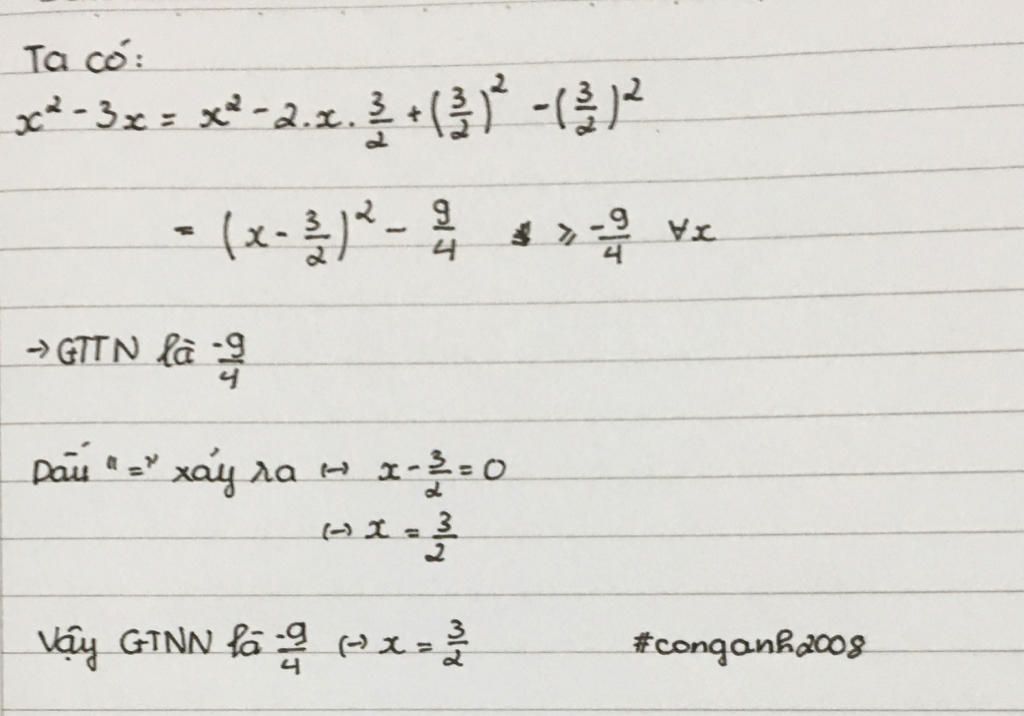 Ta có:
x² - 3x = x² - 2.x.3/2 + (3/2)² - (3/2)²
= (x - 3/2)² - 9/4 ⩾ -9/4 ∀x
→ GTTN là -9/4
Dấu "=" xảy ra ↔ x - 3/2 = 0
↔ x = 3/2
Vậy GTNN là -9/4 ↔ x = 3/2 #conganh2008